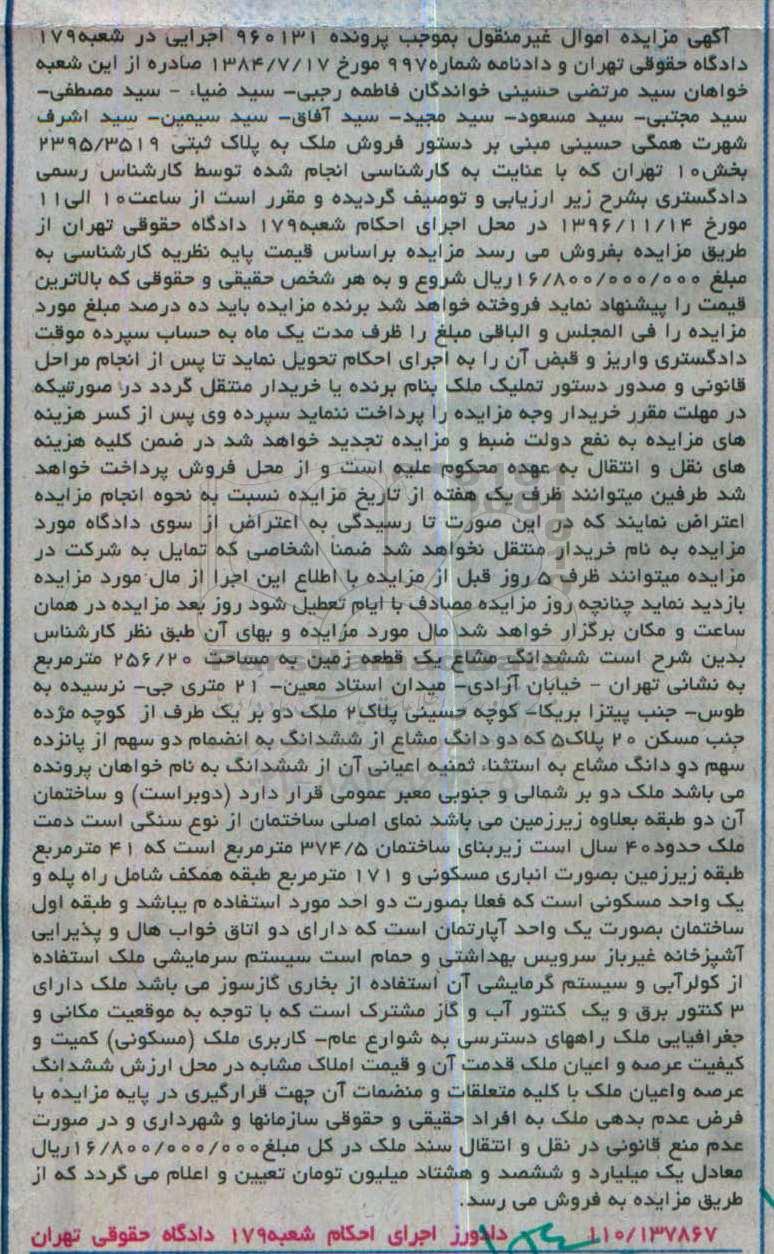 آگهی مزایده اموال غیرمنقول بموجب پرونده ۹۶۰۱۳۱ اجرایی در شعبه۱۷۹
دادگاه حقوقی تهران و دادنامه شماره۹۹۷ مورخ ۱۳۸۴/۷/۱۷ صادره از این شعبه
خواهان سید مرتضی حسینی خواندگان فاطمه رجبی- سید ضیاء - سید مصطفی-
سید مجتبی- سید مسعود- سید مجید- سید آفاق- سید سیمین- سید اشرف
شهرت همگی حسینی مبنی بر دستور فروش ملک به پلاک ثبتی ۲۳۹۵/۳۵۱۹
بخش۱۰ تهران که با عنایت به کارشناسی انجام شده توسط کارشناس رسمی
دادگستری بشرح زیر ارزیابی و توصیف گردیده و مقرر است از ساعت۱۰ الی۱۱
مورخ ۱۳۹۶/۱۱/۱۴ در محل اجرای احکام شعبه۱۷۹ دادگاه حقوقی تهران از
طریق مزایده بفروش می رسد مزایده براساس قیمت پایه نظریه کارشناسی به
مبلغ ۱۶/۸۰۰/۰۰۰/۰۰۰ریال شروع و به هر شخص حقیقی و حقوقی که بالاترین
قیمت را پیشنهاد نماید فروخته خواهد شد برنده مزایده باید ده درصد مبلغ مورد
مزایده را فی المجلس و الباقی مبلغ را ظرف مدت یک ماه به حساب سپرده موقت
دادگستری واریز و قبض آن را به اجرای احکام تحویل نماید تا پس از انجام مراحل
قانونی و صدور دستور تملیک ملک بنام برنده یا خریدار منتقل گردد در صورتیکه
در مهلت مقرر خریدار وجه مزایده را پرداخت ننماید سپرده وی پس از کسر هزینه
های مزایده به نفع دولت ضبط و مزایده تجدید خواهد شد در ضمن کلیه هزینه
های نقل و انتقال به عهده محکوم علیه است و از محل فروش پرداخت خواهد
شد طرفین میتوانند ظرف یک هفته از تاریخ مزایده نسبت به نحوه انجام مزایده
اعتراض نمایند که در این صورت تا رسیدگی به اعتراض از سوی دادگاه مورد
مزایده به نام خریدار منتقل نخواهد شد ضمنا اشخاصی که تمایل به شرکت در
مزایده میتوانند ظرف ۵ روز قبل از مزایده با اطلاع این اجرا از مال مورد مزایده
بازدید نماید چنانچه روز مزایده مصادف با ایام تعطیل شود روز بعد مزایده در همان
ساعت و مکان برگزار خواهد شد مال مورد مزایده و بهای آن طبق نظر کارشناس
بدین شرح است ششدانگ مشاع یک قطعه زمین به مساحت ۲۵۶/۲۰ مترمربع
به نشانی تهران - خیابان آزادی- میدان استاد معین- ۲۱ متری جی- نرسیده به
طوس- جنب پیتزا بریکا- کوچه حسینی پلاک۲ ملک دو بر یک طرف از کوچه مژده
جنب مسکن ۲۰ پلاک۵ که دو دانگ مشاع از ششدانگ به انضمام دو سهم از پانزده
سهم دو دانگ مشاع به استثناء ثمنیه اعیانی آن از ششدانگ به نام خواهان پرونده
می باشد ملک دو بر شمالی و جنوبی معبر عمومی قرار دارد (دوبراست) و ساختمان
آن دو طبقه بعلاوه زیرزمین می باشد نمای اصلی ساختمان از نوع سنگی است دمت
ملک حدود۴۰ سال است زیربنای ساختمان ۳۷۴/۵ مترمربع است که ۴۱ مترمربع
طبقه زیرزمین بصورت انباری مسکونی و ۱۷۱ مترمربع طبقه همکف شامل راه پله و
یک واحد مسکونی است که فعلا بصورت دو احد مورد استفاده م یباشد و طبقه اول
ساختمان بصورت یک واحد آپارتمان است که دارای دو اتاق خواب هال و پذیرایی
آشپزخانه غیرباز سرویس بهداشتی و حمام است سیستم سرمایشی ملک استفاده
از کولرآبی و سیستم گرمایشی آن استفاده از بخاری گازسوز می باشد ملک دارای
۳ کنتور برق و یک کنتور آب و گاز مشترک است که با توجه به موقعیت مکانی و
جغرافیایی ملک راههای دسترسی به شوارع عام- کاربری ملک (مسکونی) کمیت و
کیفیت عرصه و اعیان ملک قدمت آن و قیمت املاک مشابه در محل ارزش ششدانگ
عرصه واعیان ملک با کلیه متعلقات و منضمات آن جهت قرارگیری در پایه مزایده با
فرض عدم بدهی ملک به افراد حقیقی و حقوقی سازمانها و شهرداری و در صورت
عدم منع قانونی در نقل و انتقال سند ملک در کل مبلغ۱۶/۸۰۰/۰۰۰/۰۰۰ریال
معادل یک میلیارد و ششصد و هشتاد میلیون تومان تعیین و اعلام می گردد که از
طریق مزایده به فروش می رسد.
۱۱۰/۱۳۷۸۶۷ دادورز اجرای احکام شعبه۱۷۹ دادگاه حقوقی تهران